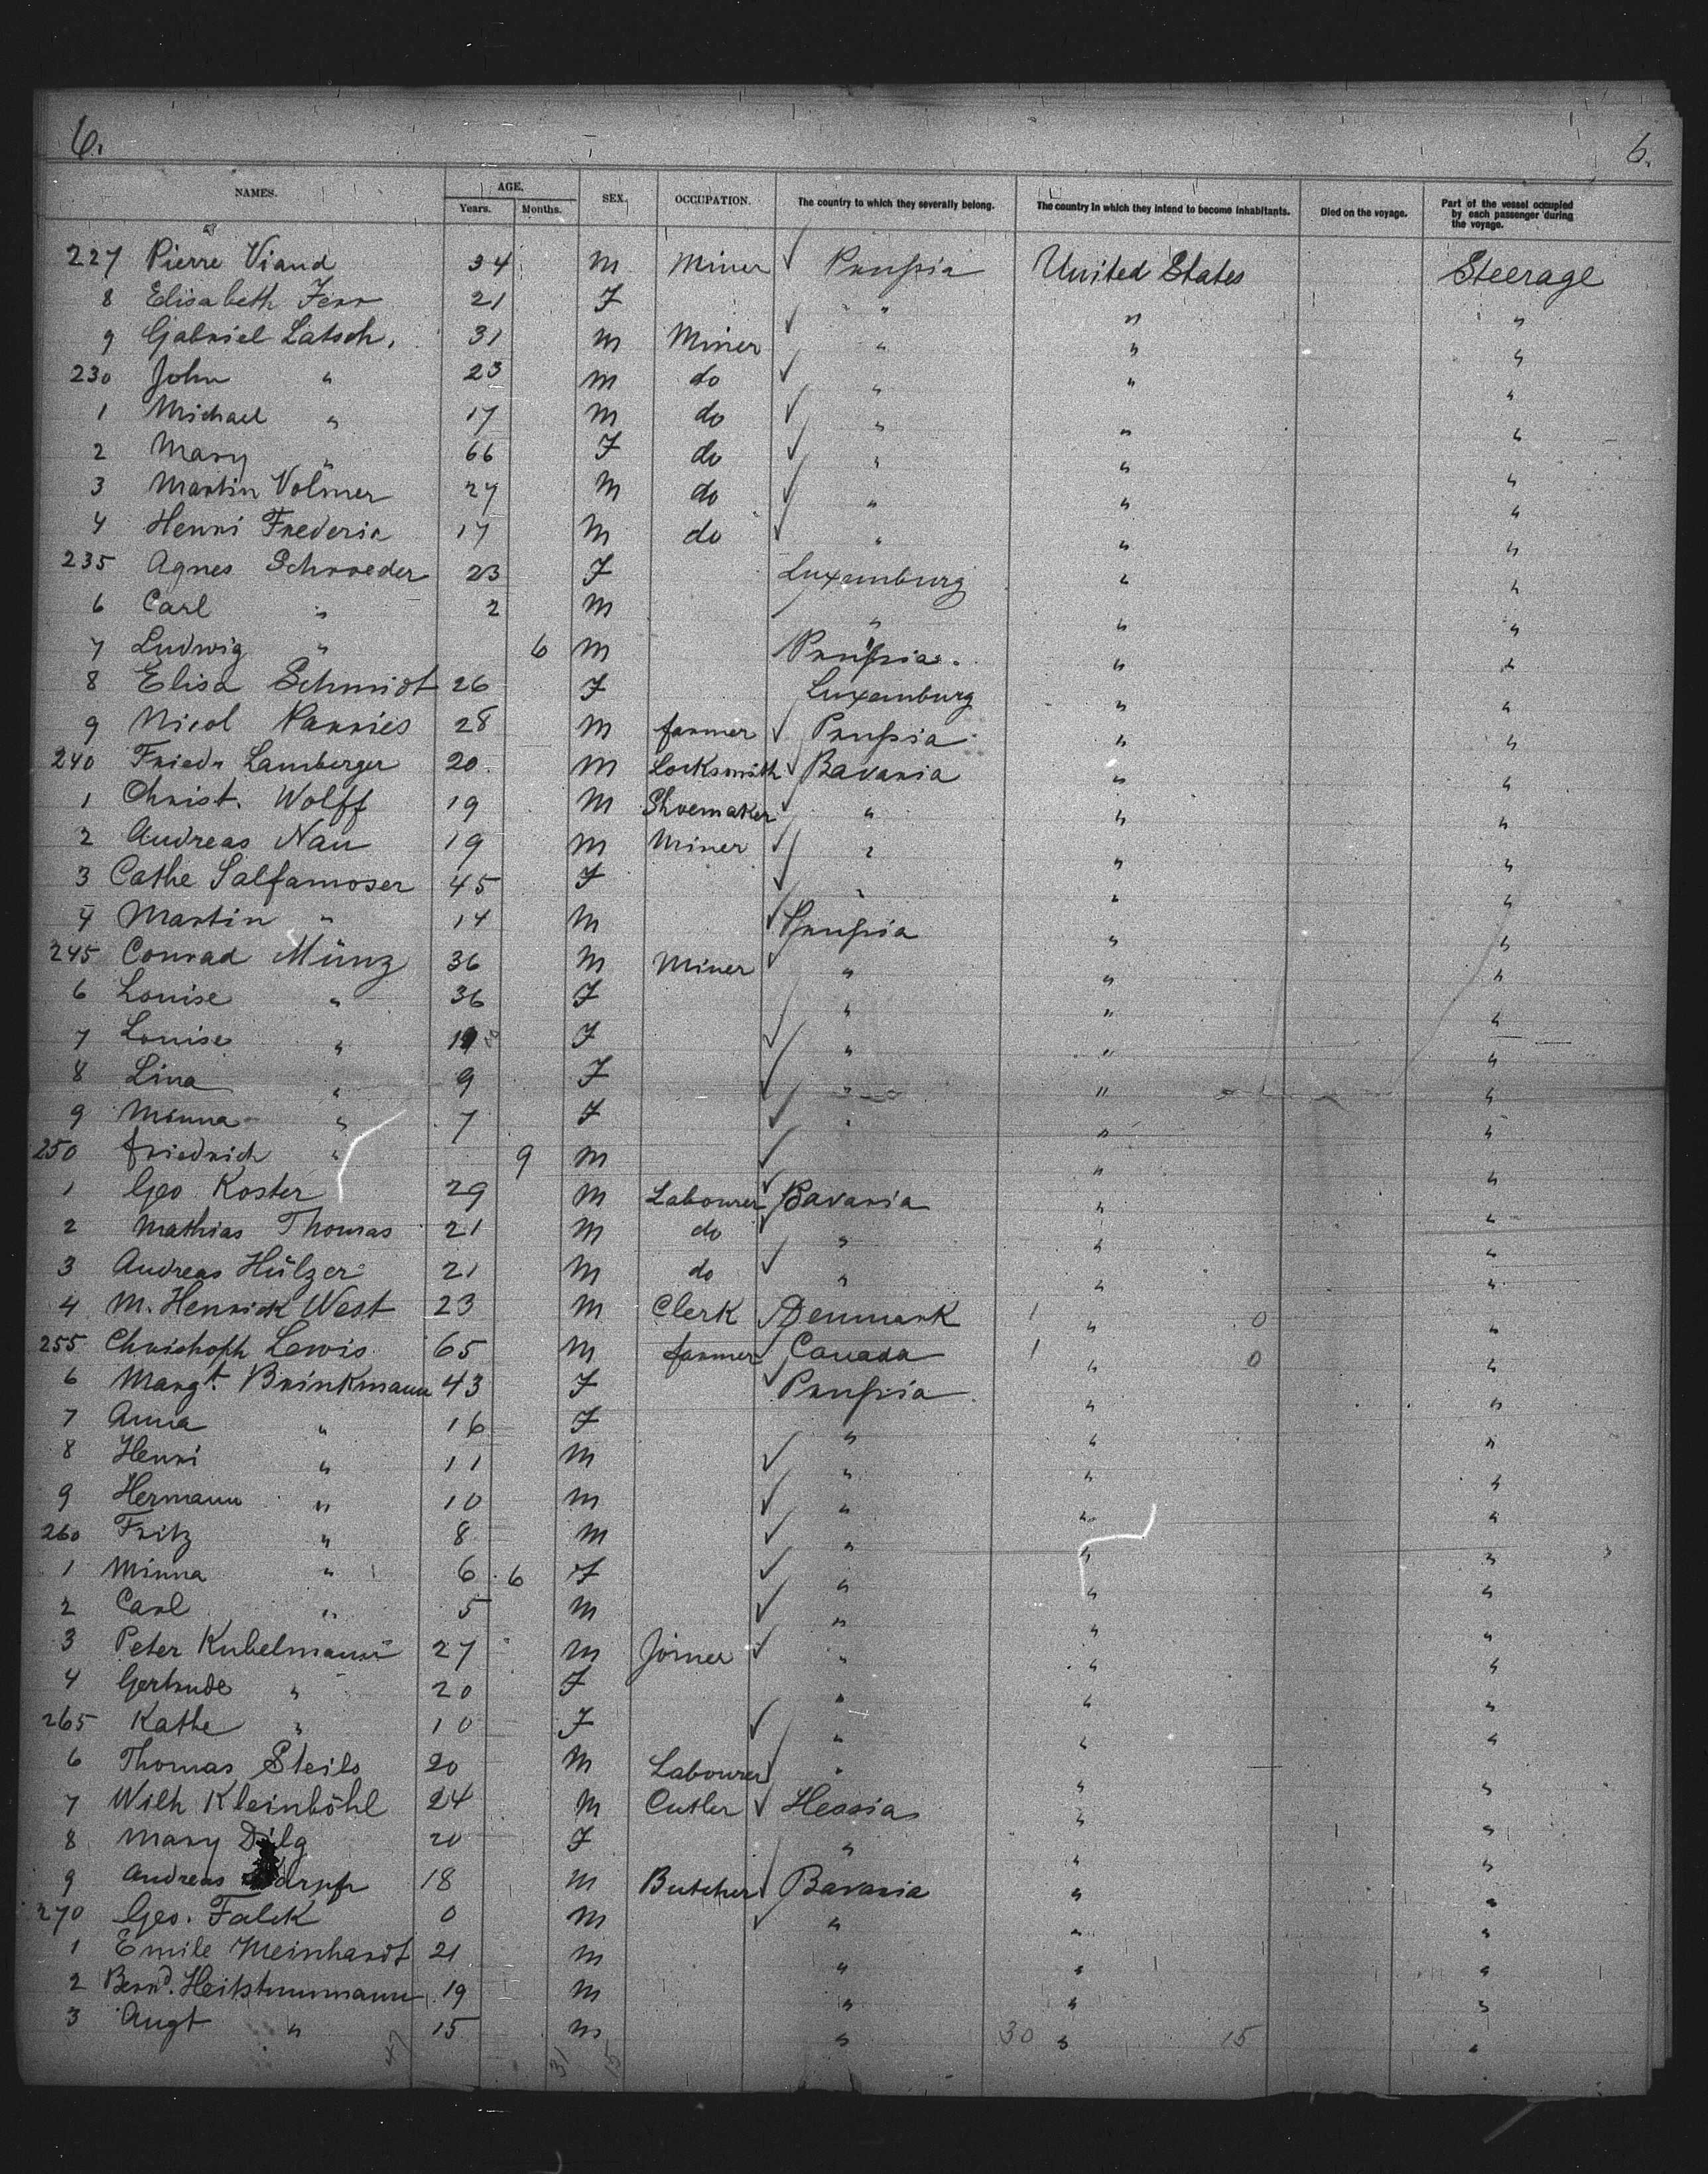 6. 6.
NAMES. AGE. Years. Months. SEX. OCCUPATION. The country to which they severally belong. The country in which they intend to become inhabitants. Died on the voyage. Part of the vessel occupied by each passenger during the voyage.
227 Pierre Viand 34 M Miner ✓ Prussia United States Steerage
8 Elisabeth 21 F " " "
9 Gabriel Latsch. 31 M Miner ✓ " " "
230 John " 23 M do ✓ " " "
1 Michael " 17 M do ✓ " " "
2 Mary " 66 F do ✓ " " "
3 Martin Volmer 27 M do ✓ " " "
4 Henri Frederic 17 M do ✓ " " "
235 Agnes Schroeder 23 F Luxemburg " "
6 Carl " 2 M " " "
7 Ludwig " 6 M Prussia. " "
8 Elisa Schmidt 26 F Luxemburg " "
9 Nicol 28 M farmer ✓ Prussia " "
240 Friedr Lamberger 20 M Locksmith ✓ Bavaria " "
1 Christ. Wolff 19 M Shoemaker ✓ " " "
2 Andreas Nau 19 M Miner ✓ " " "
3 Cathe Salfamoser 45 F ✓ " " "
4 Martin " 14 M ✓ Prussia " "
245 Conrad Münz 36 M Miner ✓ " " "
6 Louise " 36 F " " "
7 Louise " F ✓ " " "
8 Lina " 9 F ✓ " " "
9 Minna " 7 F ✓ " " "
250 Friedrich " 9 M ✓ " "
1 Geo Koster 29 M Labourer ✓ Bavaria " "
2 Mathias Thomas 21 M do ✓ " " "
3 Andreas Hülzer 21 M do ✓ " " "
4 M. Henrick West 23 M Clerk ✓ Denmark 1 " 0 "
255 Christoph Lewis 65 M farmer ✓ Canada 1 " 0 "
6 Margt. Brinkmann 43 F ✓ Prussia " "
7 Anna " 16 F " " "
8 Henri " 11 M ✓ " " "
9 Hermann " 10 M ✓ " " "
260 Fritz " 8 M ✓ " " "
1 Minna " 6 6 F ✓ " " "
2 Carl " 5 M ✓ " " "
3 Peter Kubelmann 27 M Joiner ✓ " " "
4 Gertrude " 20 F " " "
265 Kathe " 10 F ✓ " " "
6 Thomas Steils 20 M Labourer ✓ " " "
7 Wilh Kleinböhl 24 M Cutler ✓ Hessia " "
8 Mary Dilg 20 F " " "
9 Andreas 18 M Butcher ✓ Bavaria " "
270 Geo. Falck 0 M ✓ " " "
1 Emile Meinhardt 21 M " " "
2 Bernd. 19 M " " "
3 Augt " 15 M " 30 " 15 "
47 31 15